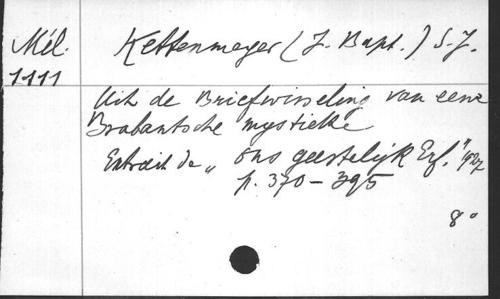 Mél. Kettenmeyer (J. Bapt.) S.J.
1111
Uit de Briefwisseling van eene
Brabantsche mystieke
Extrait de „ Ons geestelijk Erf." 1927
p. 370 – 395
8°